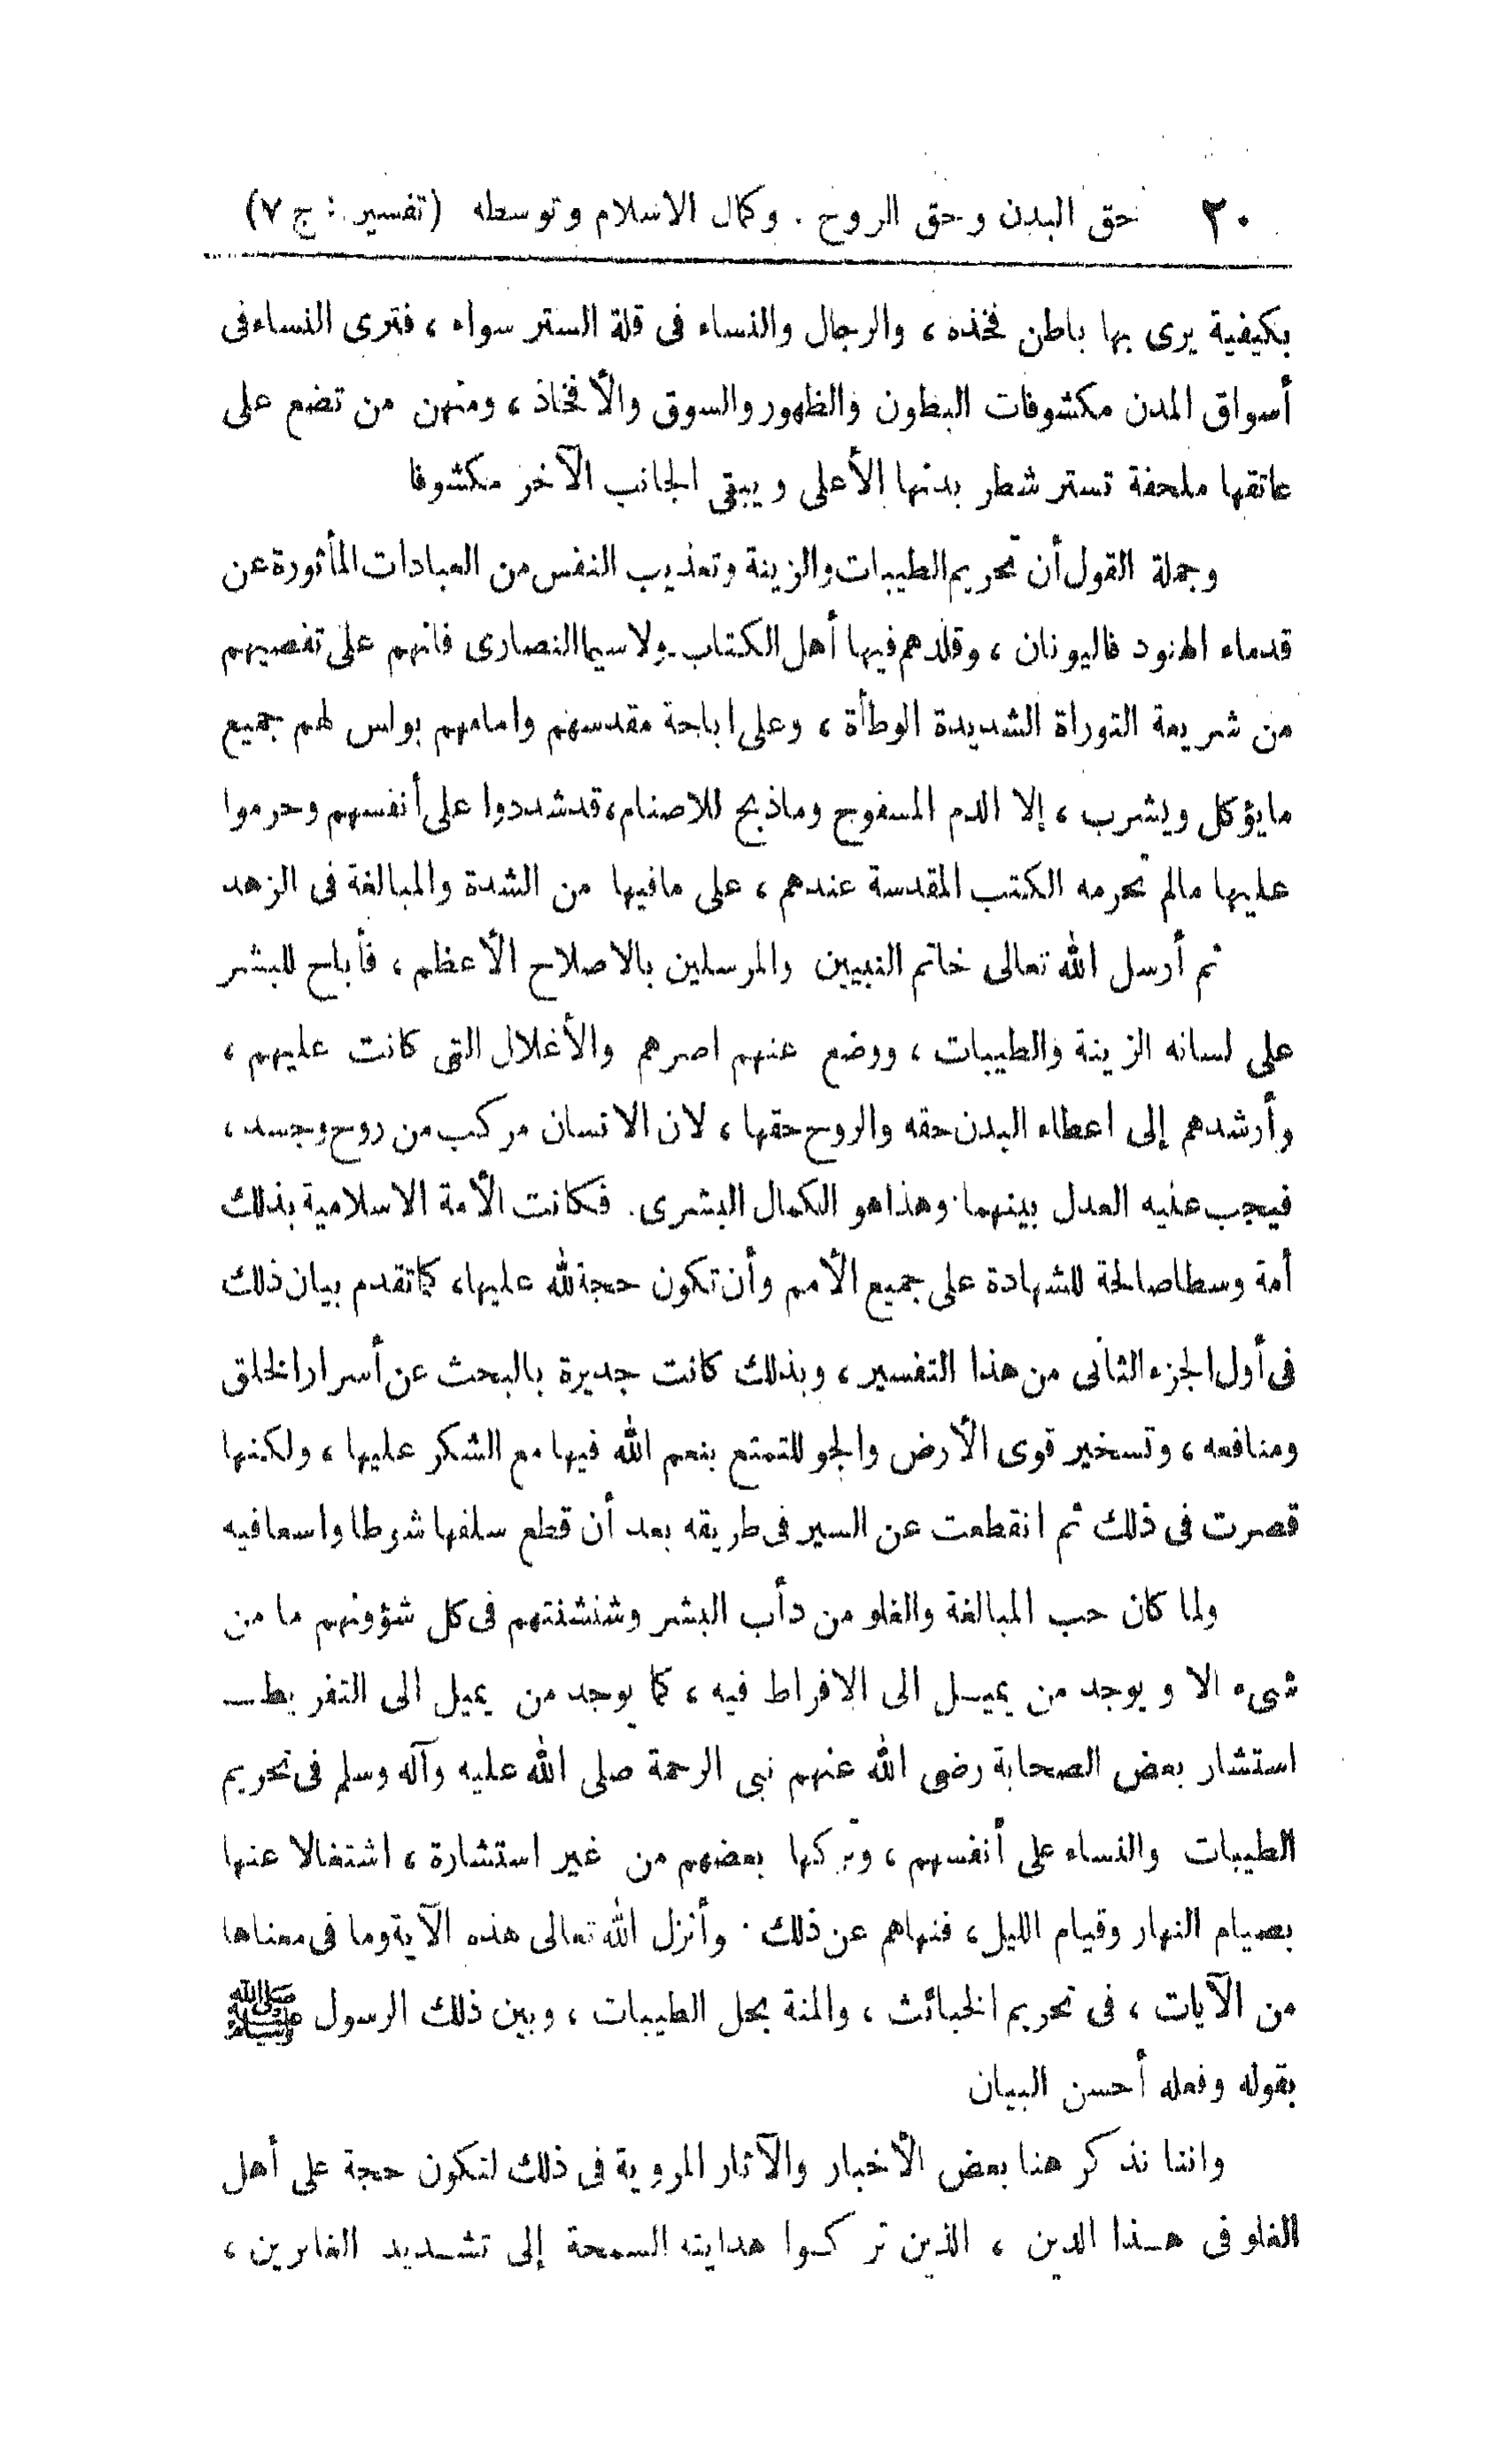 ٢٠ حق البدن وحق الروح . وكمال الاسلام وتوسطه (تفسير : ج ٧)
بكيفية يرى بها باطن فخذه ، والرجال والنساء فى قلة الستر سواء ، فترى النساء فى
أسواق المدن مكشوفات البطون والظهور والسوق والأفخاذ ، ومنهن من تضع على
عاتقها ملحفة تستر شطر بدنها الأعلى ويبقى الجانب الآخر مكشوفا
وجملة القول أن تحريم الطيبات والزينة وتعذيب النفس من العبادات المأثورة عن
قدماء الهنود فاليونان ، وقلدهم فيها أهل الكتاب ولاسيما النصارى فانهم على تفصيهم
من شريعة التوراة الشديدة الوطأة ، وعلى اباحة مقدسهم وامامهم بولس لهم جميع
مايؤكل ويشرب ، إلا الدم المسفوح وماذبح للاصنام ، قد شددوا على أنفسهم وحرموا
عليها مالم تحرمه الكتب المقدسة عندهم ، على مافيها من الشدة والمبالغة فى الزهد
ثم أرسل الله تعالى خاتم النبيين والمرسلين بالاصلاح الأعظم ، فأباح للبشر
على لسانه الزينة والطيبات ، ووضع عنهم اصرهم والأغلال التى كانت عليهم ،
وأرشدهم إلى اعطاء البدن حقه والروح حقها ، لان الانسان مركب من روح وجسد ،
فيجب عليه العدل بينهما . وهذا هو الكمال البشرى . فكانت الأمة الاسلامية بذلك
أمة وسطا صالحة للشهادة على جميع الأمم وأن تكون حجة لله عليها ، كما تقدم بيان ذلك
فى أول الجزء الثانى من هذا التفسير ، وبذلك كانت جديرة بالبحث عن أسرار الخلق
ومنافعه ، وتسخير قوى الأرض والجو للتمتع بنعم الله فيها مع الشكر عليها ، ولكنها
قصرت فى ذلك ثم انقطعت عن السير فى طريقه بعد أن قطع سلفها شوطا واسعا فيه
ولما كان حب المبالغة والغلو من دأب البشر وشنشنتهم فى كل شؤونهم ما من
شىء الا ويوجد من يميــل الى الافراط فيه ، كما يوجد من يميل الى التفريط ــ
استشار بعض الصحابة رضى الله عنهم نبى الرحمة صلى الله عليه وآله وسلم فى تحريم
الطيبات والنساء على أنفسهم ، وتركها بعضهم من غير استشارة ، اشتغالا عنها
بصيام النهار وقيام الليل ، فنهاهم عن ذلك . وأنزل الله تعالى هذه الآية وما فى معناها
من الآيات ، فى تحريم الخبائث ، والمنة بحل الطيبات ، وبين ذلك الرسول ﷺ
بقوله وفعله أحسن البيان
واننا نذكر هنا بعض الأخبار والآثار المروية فى ذلك لتكون حجة على أهل
الغلو فى هــذا الدين ، الذين تركــوا هدايته السمحة إلى تشــديد الغابرين ،